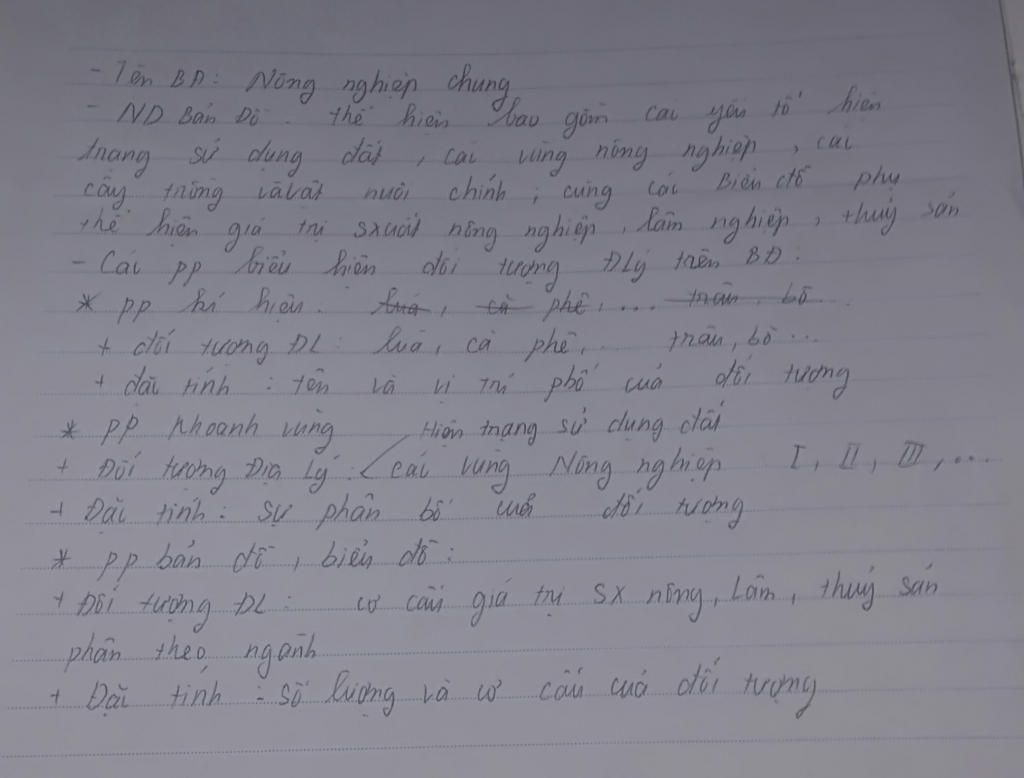 - Tên BĐ: Nông nghiệp chung
- ND Bản Đồ. thể hiện bao gồm các yếu tố hiện
trạng sử dụng đất, các vùng nông nghiệp, các
cây trồng và vật nuôi chính; cùng các Biểu đồ phụ
thể hiện giá trị sxuất nông nghiệp, lâm nghiệp, thuỷ sản
- Các pp biểu hiện đối tượng ĐLý trên BĐ:
* pp kí hiệu. lúa, cà phê, ... trâu, bò
+ đối tượng ĐL: lúa, cà phê,.. trâu, bò ...
+ đặc tính: tên và vị trí phố của đối tượng
* PP khoanh vùng Hiện trạng sử dụng đất
+ Đối tượng Địa Lý: các vùng Nông nghiệp I, II, III, ...
+ Đặc tính: sự phân bố của đối tượng
* pp bản đồ, biểu đồ:
+ Đối tượng ĐL: cơ cấu giá trị SX nông, Lâm, thuỷ sản
phân theo ngành
+ Đặc tính: số lượng và cơ cấu của đối tượng